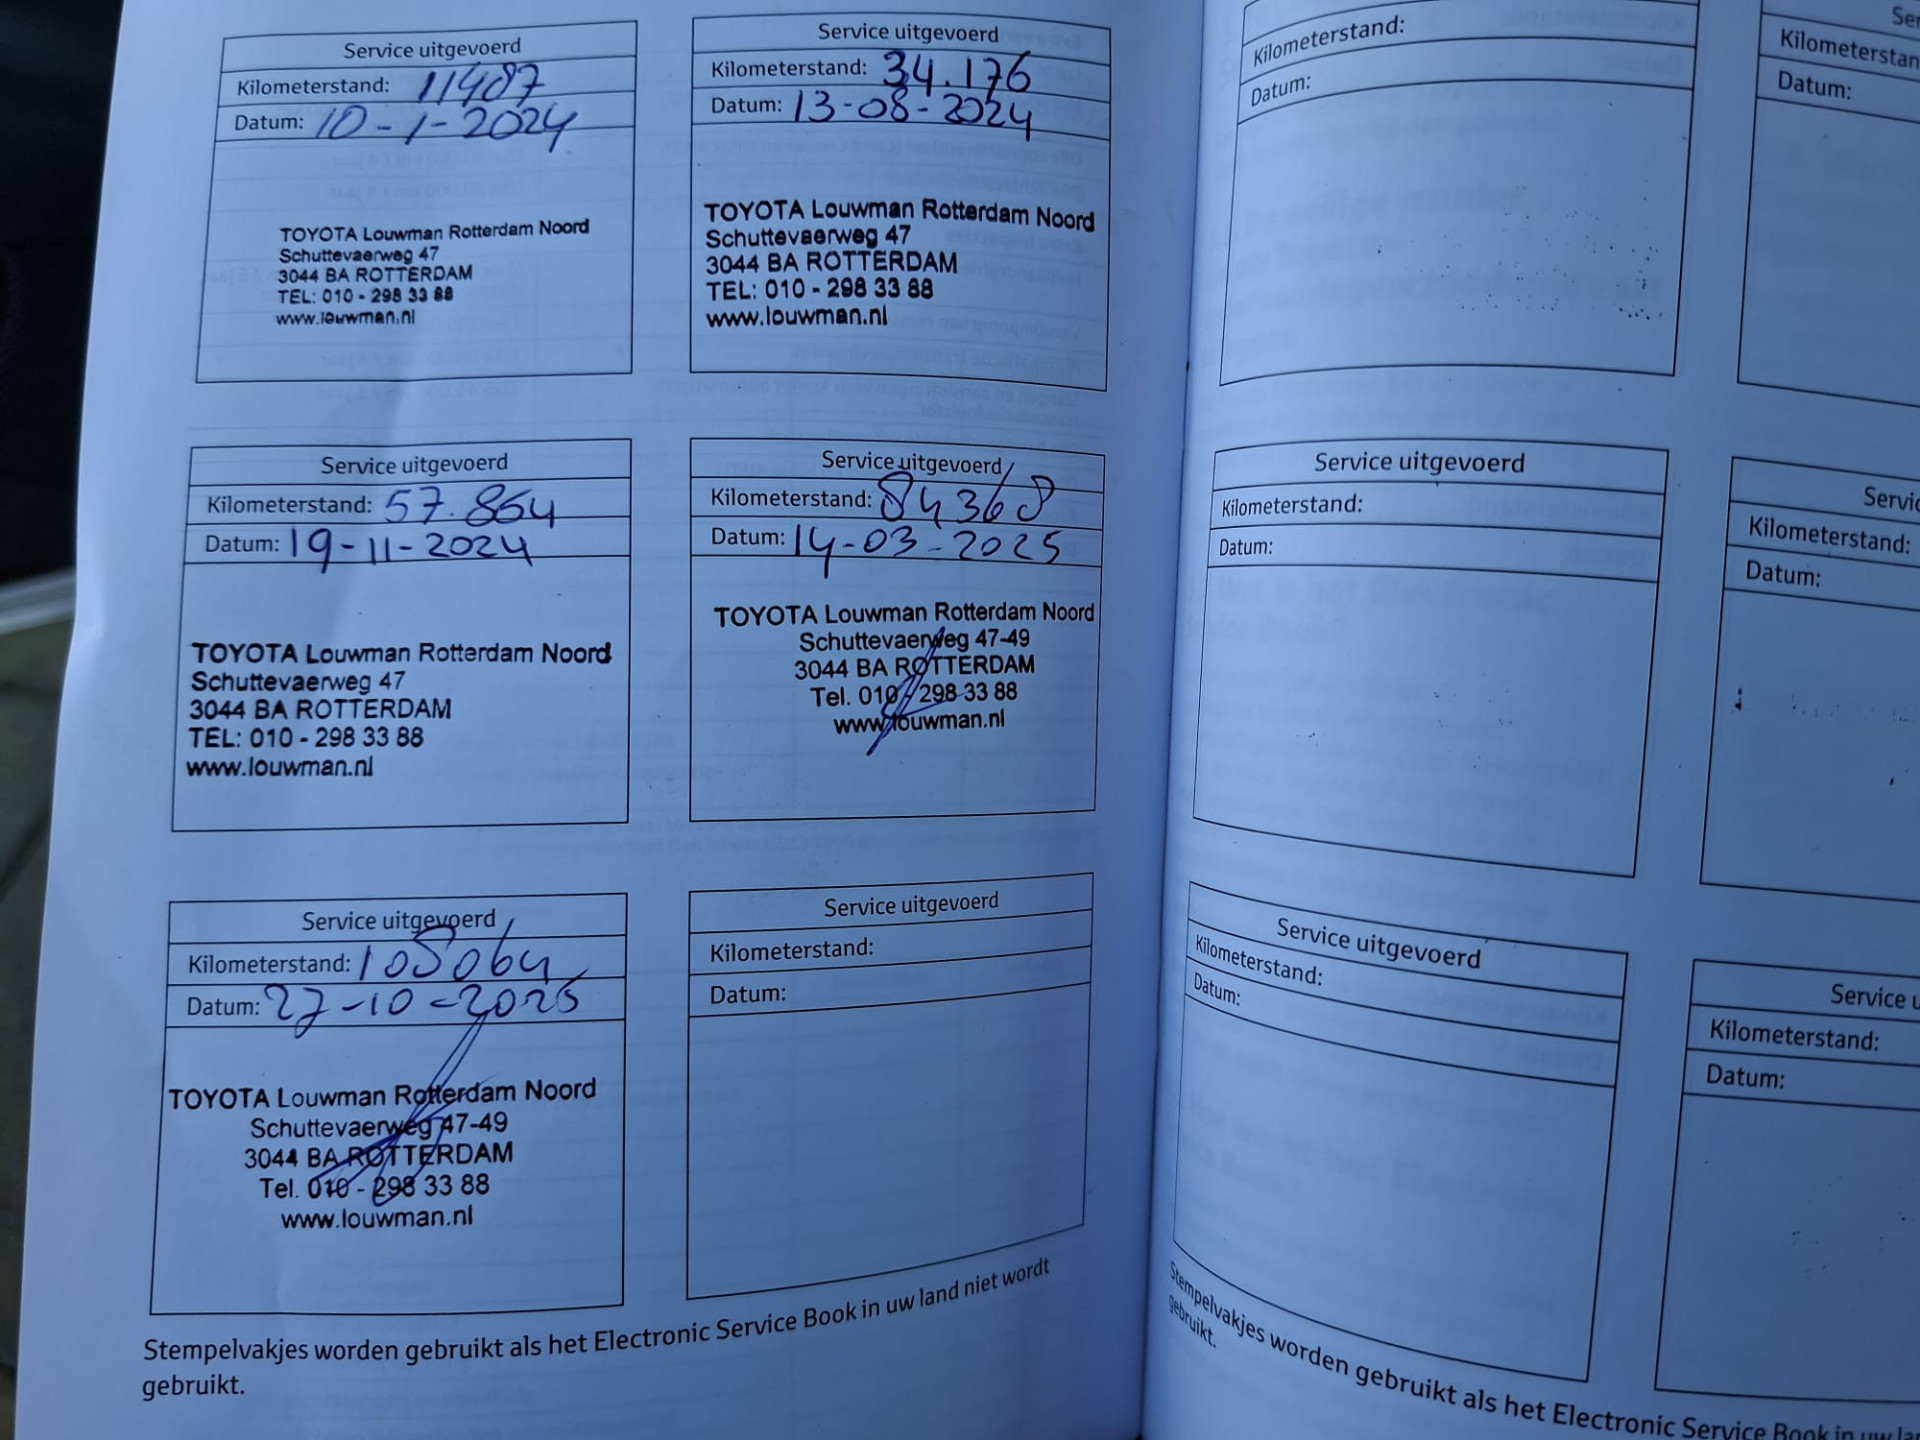 Service uitgevoerd
Kilometerstand: 11487
Datum: 10-1-2024
TOYOTA Louwman Rotterdam Noord
Schuttevaerweg 47
3044 BA ROTTERDAM
TEL: 010 - 298 33 88
www.louwman.nl
Service uitgevoerd
Kilometerstand: 34.176
Datum: 13-08-2024
TOYOTA Louwman Rotterdam Noord
Schuttevaerweg 47
3044 BA ROTTERDAM
TEL: 010 - 298 33 88
www.louwman.nl
Service uitgevoerd
Kilometerstand: 57.864
Datum: 19-11-2024
TOYOTA Louwman Rotterdam Noord
Schuttevaerweg 47
3044 BA ROTTERDAM
TEL: 010 - 298 33 88
www.louwman.nl
Service uitgevoerd
Kilometerstand: 84368
Datum: 14-03-2025
TOYOTA Louwman Rotterdam Noord
Schuttevaerweg 47-49
3044 BA ROTTERDAM
Tel. 010 - 298 33 88
www.louwman.nl
Service uitgevoerd
Kilometerstand: 108064
Datum: 27-10-2025
TOYOTA Louwman Rotterdam Noord
Schuttevaerweg 47-49
3044 BA ROTTERDAM
Tel. 010 - 298 33 88
www.louwman.nl
Service uitgevoerd
Kilometerstand:
Datum:
Stempelvakjes worden gebruikt als het Electronic Service Book in uw land niet wordt
gebruikt.
Kilometerstand:
Datum:
Kilometerstan
Datum:
Service uitgevoerd
Kilometerstand:
Datum:
Servic
Kilometerstand:
Datum:
Service uitgevoerd
Kilometerstand:
Datum:
Service u
Kilometerstand:
Datum:
Stempelvakjes worden gebruikt als het Electronic Service Book in uw la
gebruikt.